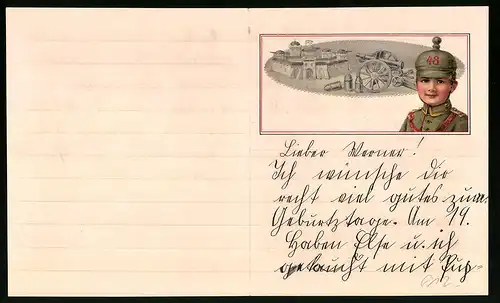 48
Lieber Werner!
Ich wünsche dir
recht viel gutes zum
Geburtztage. Am 19.
Haben Else u. ich
getauscht mit Pup-